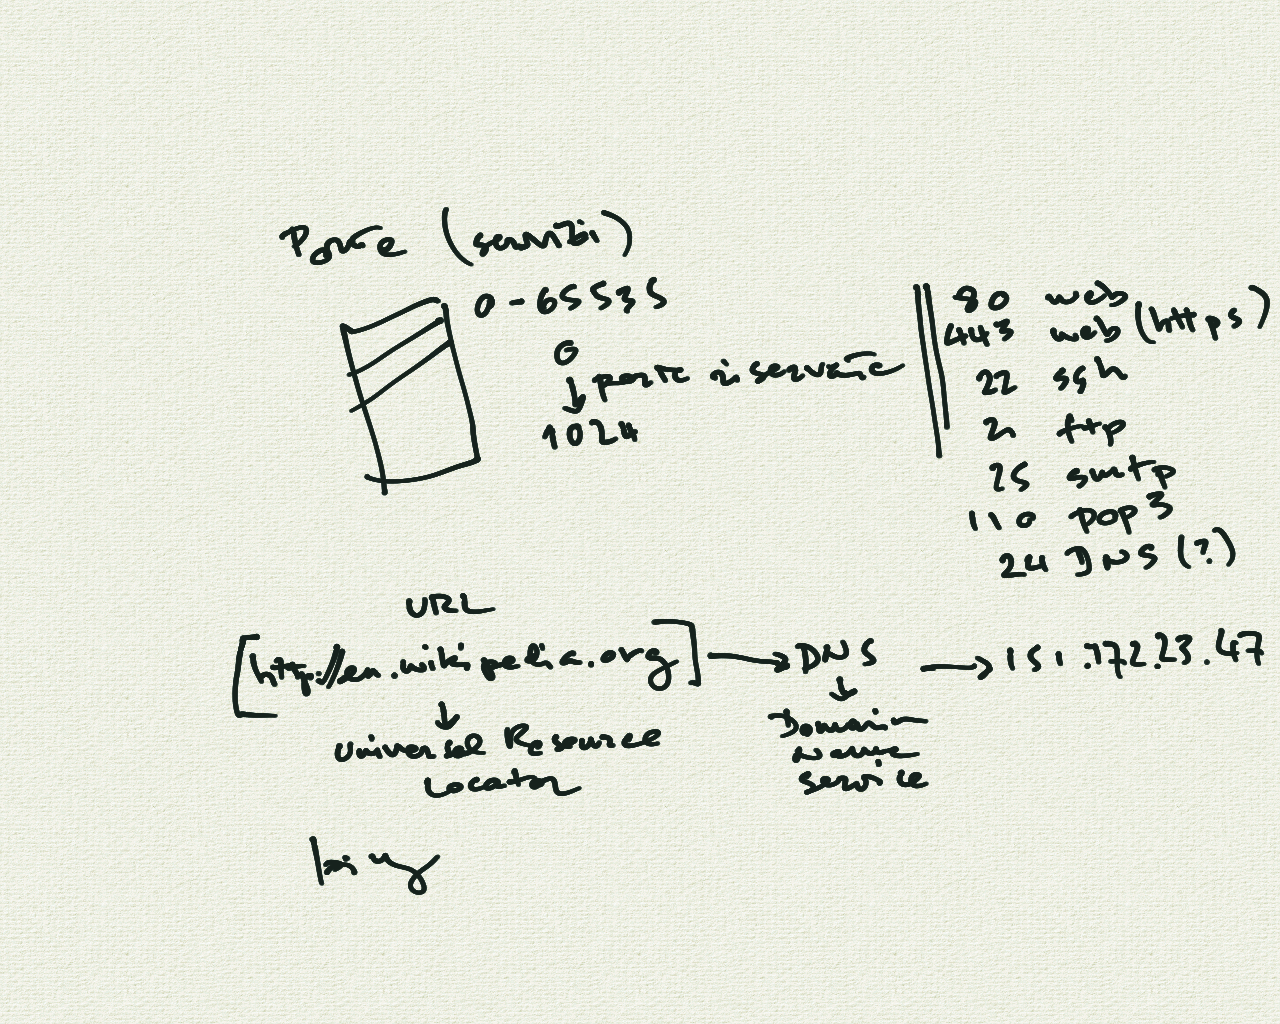 Porte (servizi)
0 - 65535
0
porte di servizio
1024
80 web
443 web (https)
22 ssh
21 ftp
25 smtp
110 pop3
24 DNS (?)
URL
[http://en.wikipedia.org] → DNS → 151.172.23.47
Universal Resource
Locator
Domain
Name
Service